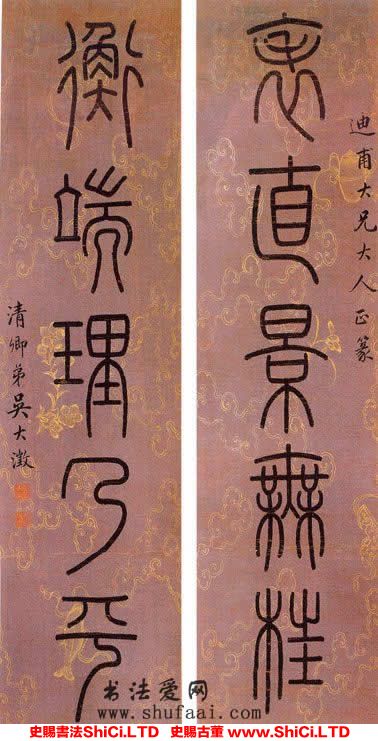 迪甫大兄大人正篆
表直景無枉
衡端理乃平
清卿弟吳大澂
书法爱网
www.shufaai.com
史賜書法ShiCi.LTD 史賜古董 www.ShiCi.LTD